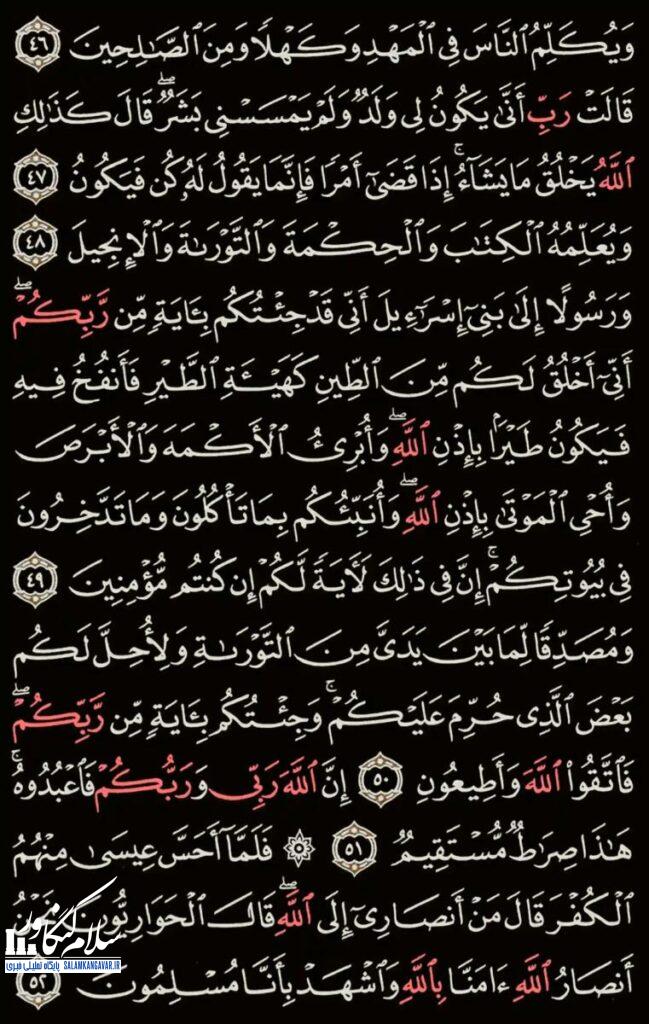 وَيُكَلِّمُ ٱلنَّاسَ فِي ٱلْمَهْدِ وَكَهْلًا وَمِنَ ٱلصَّٰلِحِينَ ٤٦
قَالَتْ رَبِّ أَنَّىٰ يَكُونُ لِي وَلَدٞ وَلَمْ يَمْسَسْنِي بَشَرٞۖ قَالَ كَذَٰلِكِ
ٱللَّهُ يَخْلُقُ مَا يَشَآءُۚ إِذَا قَضَىٰٓ أَمْرٗا فَإِنَّمَا يَقُولُ لَهُۥ كُن فَيَكُونُ ٤٧
وَيُعَلِّمُهُ ٱلْكِتَٰبَ وَٱلْحِكْمَةَ وَٱلتَّوْرَىٰةَ وَٱلْإِنجِيلَ ٤٨
وَرَسُولًا إِلَىٰ بَنِيٓ إِسْرَٰٓءِيلَ أَنِّي قَدْ جِئْتُكُم بِـَٔايَةٖ مِّن رَّبِّكُمْۖ
أَنِّيٓ أَخْلُقُ لَكُم مِّنَ ٱلطِّينِ كَهَيْـَٔةِ ٱلطَّيْرِ فَأَنفُخُ فِيهِ
فَيَكُونُ طَيْرَۢا بِإِذْنِ ٱللَّهِۖ وَأُبْرِئُ ٱلْأَكْمَهَ وَٱلْأَبْرَصَ
وَأُحْيِ ٱلْمَوْتَىٰ بِإِذْنِ ٱللَّهِۖ وَأُنَبِّئُكُم بِمَا تَأْكُلُونَ وَمَا تَدَّخِرُونَ
فِي بُيُوتِكُمْۚ إِنَّ فِي ذَٰلِكَ لَأٓيَةٗ لَّكُمْ إِن كُنتُم مُّؤْمِنِينَ ٤٩
وَمُصَدِّقٗا لِّمَا بَيْنَ يَدَيَّ مِنَ ٱلتَّوْرَىٰةِ وَلِأُحِلَّ لَكُم
بَعْضَ ٱلَّذِي حُرِّمَ عَلَيْكُمْۚ وَجِئْتُكُم بِـَٔايَةٖ مِّن رَّبِّكُمْۖ
فَٱتَّقُوا۟ ٱللَّهَ وَأَطِيعُونِ ٥٠ إِنَّ ٱللَّهَ رَبِّي وَرَبُّكُمْ فَٱعْبُدُوهُۚ
هَٰذَا صِرَٰطٞ مُّسْتَقِيمٞ ٥١ ۞ فَلَمَّآ أَحَسَّ عِيسَىٰ مِنْهُمُ
ٱلْكُفْرَ قَالَ مَنْ أَنصَارِيٓ إِلَى ٱللَّهِۖ قَالَ ٱلْحَوَارِيُّونَ نَحْنُ
أَنصَارُ ٱللَّهِ ءَامَنَّا بِٱللَّهِ وَٱشْهَدْ بِأَنَّا مُسْلِمُونَ ٥٢
سلام کنگاور
پایگاه تحلیلی خبری SALAMKANGAVAR.IR